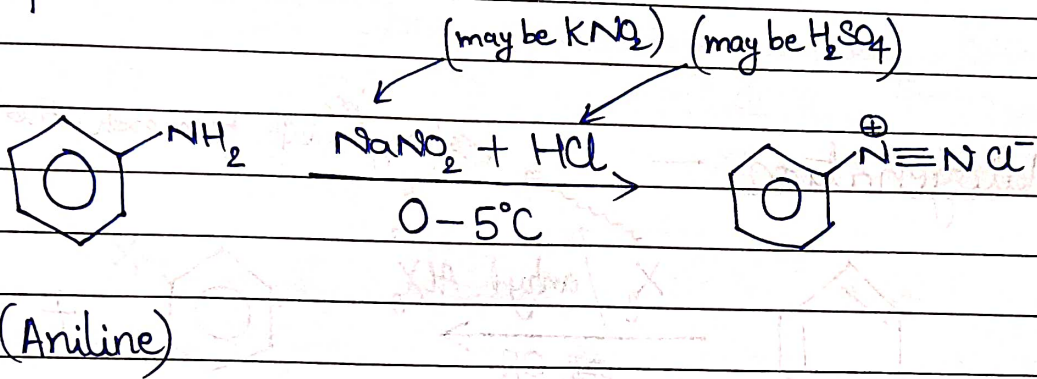 (may be KNO₂) (may be H₂SO₄)
NH₂ NaNO₂ + HCl ⊕ N≡N Cl⁻
0–5°C
(Aniline)